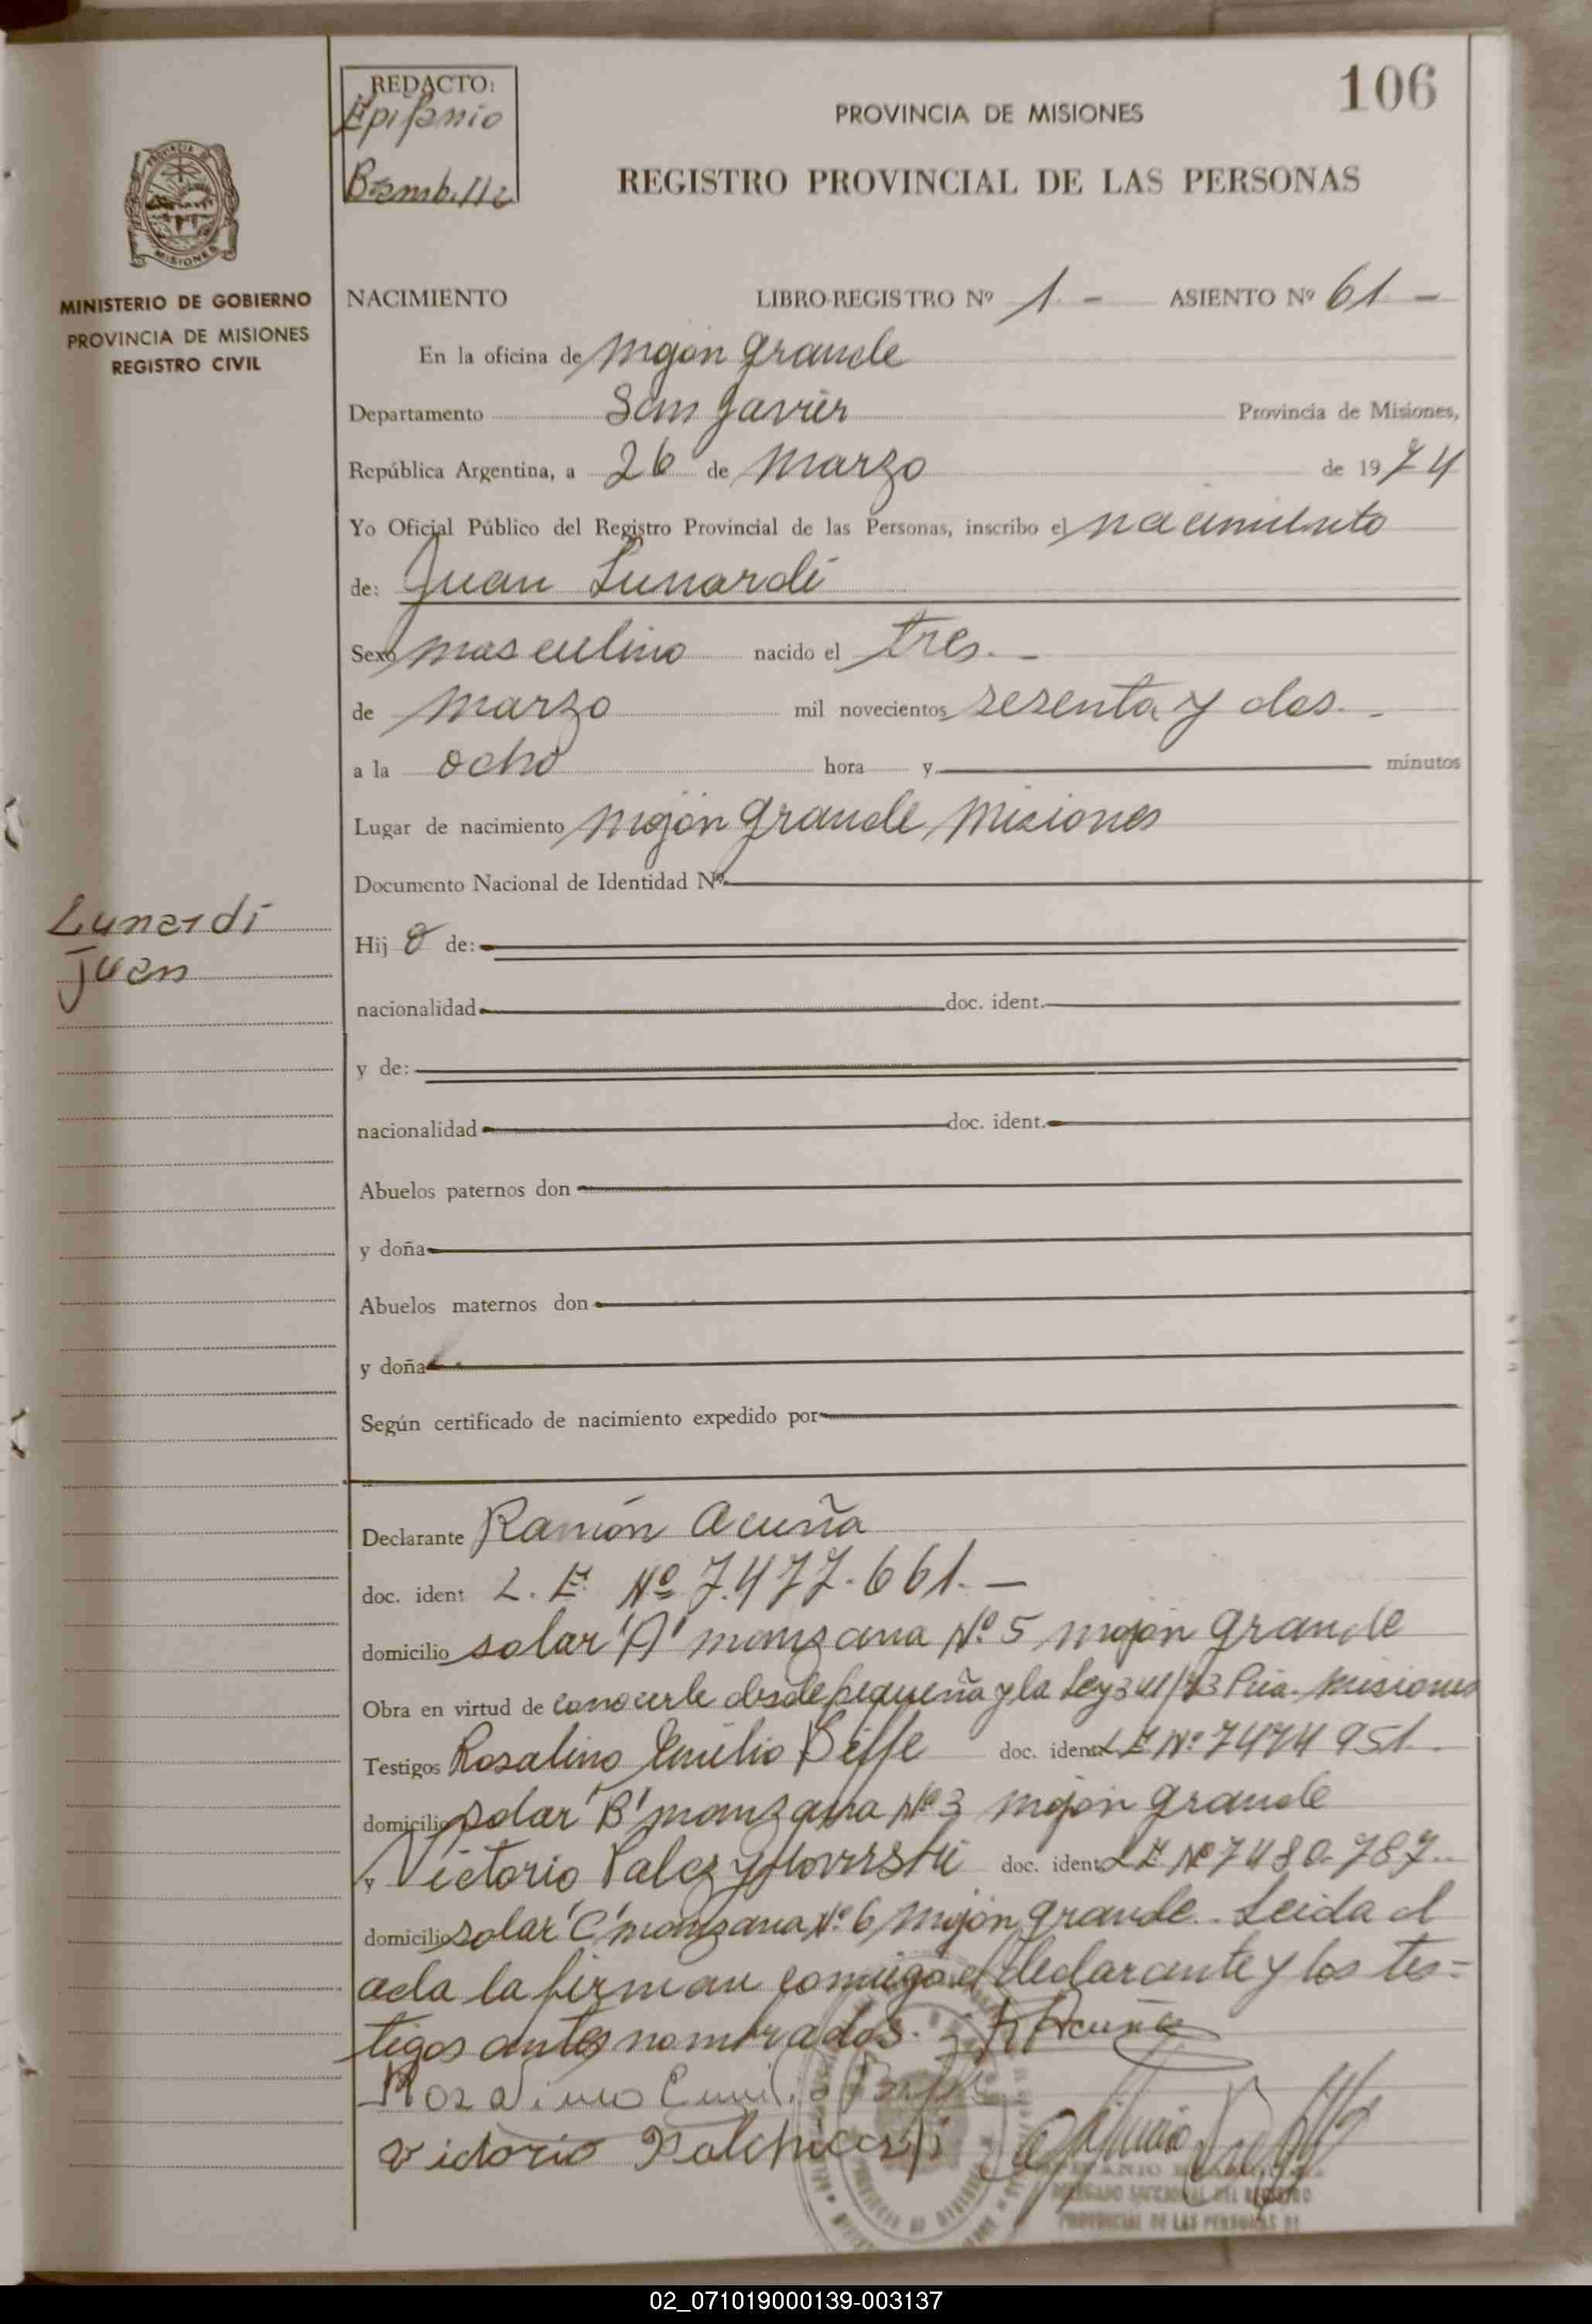 106
REDACTO:
Epifanio
Brambilla
PROVINCIA DE MISIONES
REGISTRO PROVINCIAL DE LAS PERSONAS
PROVINCIA DE
MISIONES
MINISTERIO DE GOBIERNO
PROVINCIA DE MISIONES
REGISTRO CIVIL
NACIMIENTO LIBRO-REGISTRO Nº 1 - ASIENTO Nº 61 -
En la oficina de Mojón Grande
Departamento San Javier Provincia de Misiones,
República Argentina, a 26 de Marzo de 1974
Yo Oficial Público del Registro Provincial de las Personas, inscribo el nacimiento
de: Juan Lunardi
Sexo masculino nacido el tres. -
de marzo mil novecientos sesenta y dos. -
a la ocho hora y minutos
Lugar de nacimiento Mojón Grande, Misiones
Documento Nacional de Identidad Nº
Lunardi
Juan
Hij o de:
nacionalidad doc. ident.
y de:
nacionalidad doc. ident.
Abuelos paternos don
y doña
Abuelos maternos don
y doña
Según certificado de nacimiento expedido por
Declarante Ramón Acuña
doc. ident L. E. Nº 7.477.661. -
domicilio solar 'A' manzana Nº 5 Mojón Grande
Obra en virtud de conocerle desde pequeña y la Ley 341/73 Pcia. Misiones
Testigos Rosalino Emilio doc. ident LE Nº 7474951.
domicilio solar 'B' manzana Nº 3 Mojón Grande
y Victorio doc. ident LE Nº 7480.787.
domicilio solar 'C' manzana Nº 6 Mojón Grande. Leida el
acta la firman conmigo el declarante y los tes=
tigos antes nombrados. - R Acuña
Rosalino Emilio
Victorio
DELEGADO SECCIONAL DEL REGISTRO
PROVINCIAL DE LAS PERSONAS DE
02_071019000139-003137